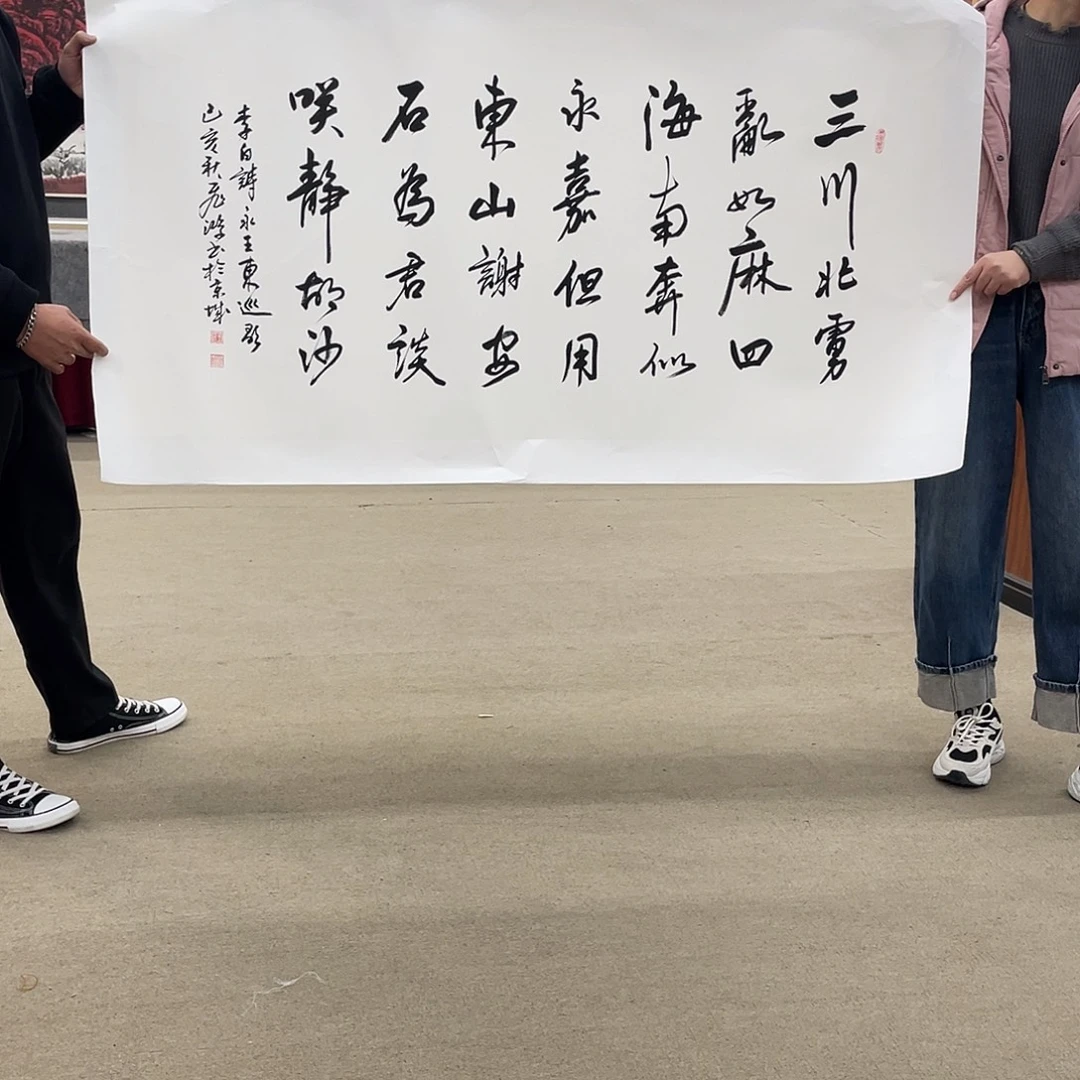 三川北虜
亂如麻四
海南奔似
永嘉但用
東山謝安
石為君談
咲靜胡沙
李白詩永王東巡歌
己亥秋书於京城